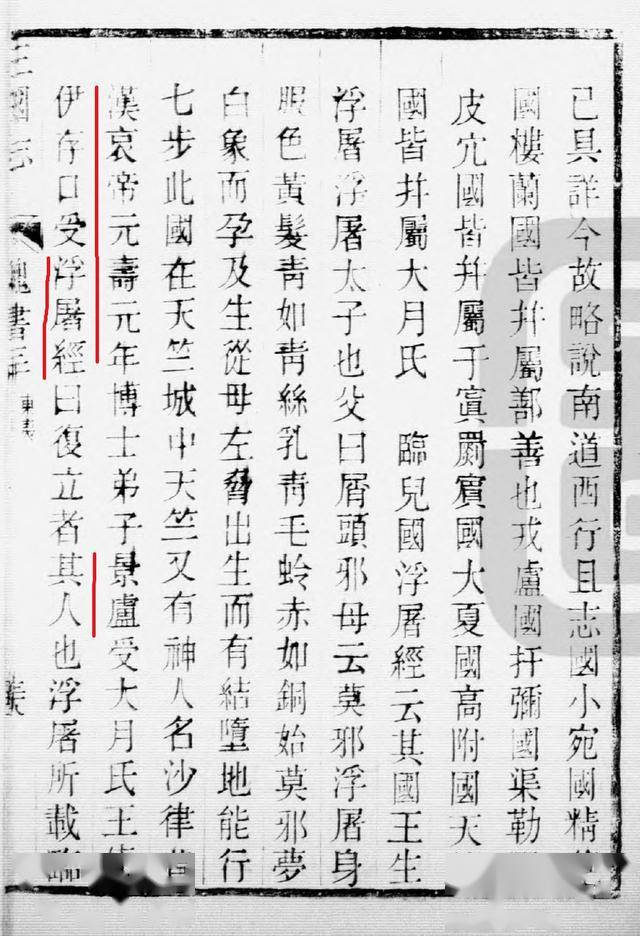 已具詳今故略說南道西行且志國小宛國精
國樓蘭國皆并屬鄯善也戎盧國扞彌國渠勒
皮穴國皆并屬于寘罽賓國大夏國高附國天
國皆并屬大月氏 臨兒國浮屠經云其國王生
浮屠浮屠太子也父曰屑頭邪母云莫邪浮屠身
服色黃髮青如青絲乳青毛蛉赤如銅始莫邪夢
白象而孕及生從母左脅出生而有結墮地能行
七步此國在天竺城中天竺又有神人名沙律
漢哀帝元壽元年博士弟子景盧受大月氏王
伊存口受浮屠經曰復立者其人也浮屠所載臨
三國志 魏書三